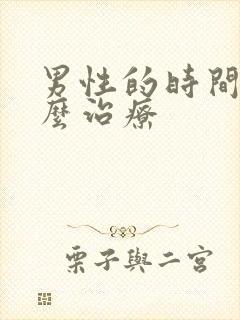 男性的時間
麼治療
栗子與二宮